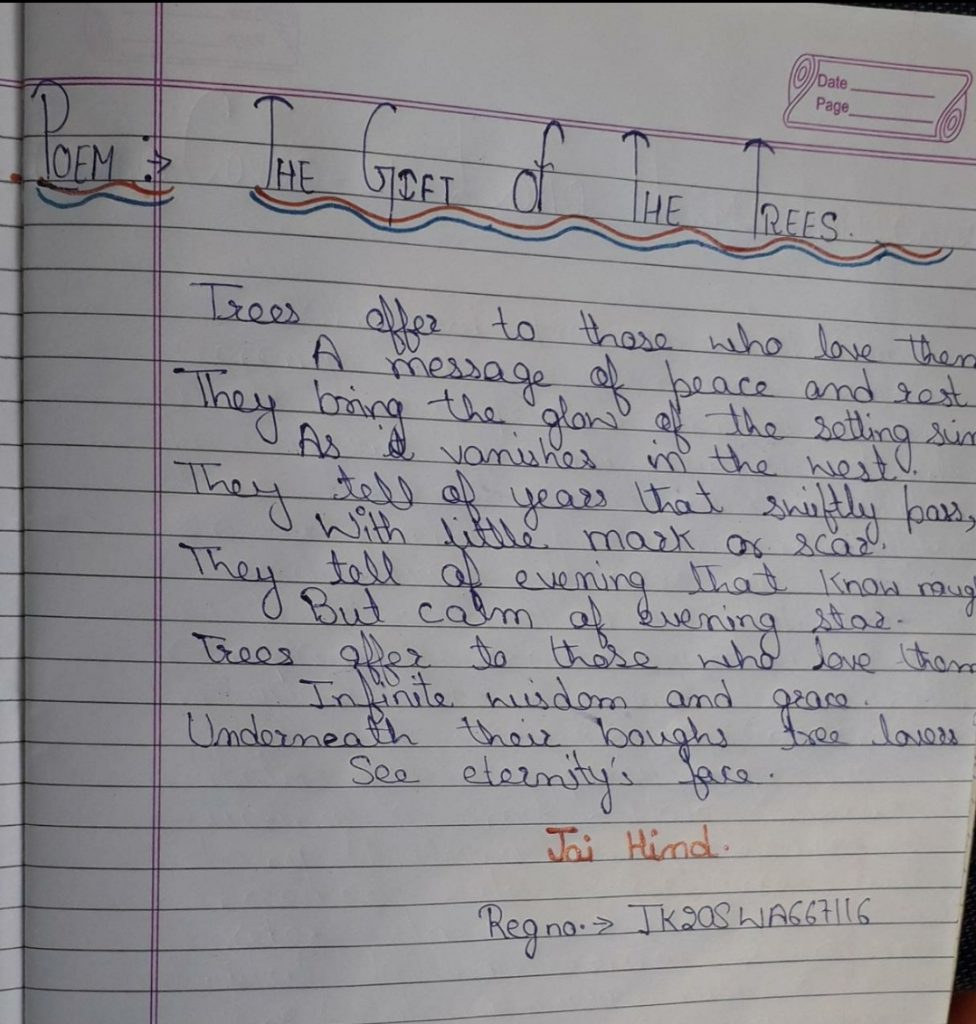 Date
Page
POEM :→ THE GIFT of THE TREES.
Trees offer to those who love them
A message of peace and rest
They bring the glow of the setting sun
As it vanishes in the west.
They tell of years that swiftly pass,
With little mark or scar.
They tell of evening that know naug
But calm of evening star.
Trees offer to those who love them
Infinite wisdom and grace.
Underneath their boughs tree lovers
See eternity's face.
Jai Hind.
Reg no.→ JK20SWA667116